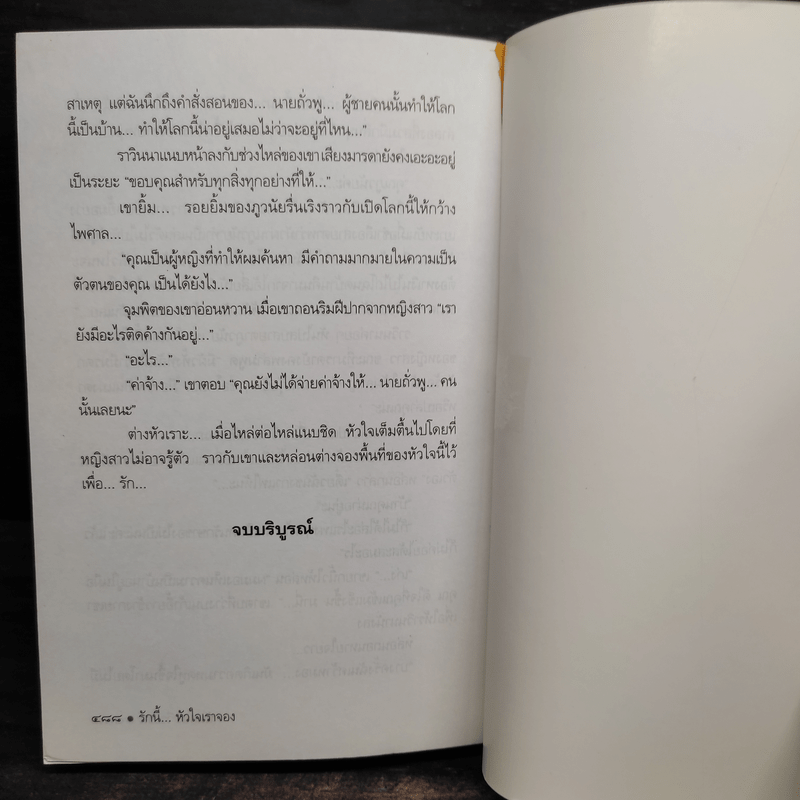 สาเหตุ แต่ฉันนึกถึงคำสั่งสอนของ... นายถั่วพู... ผู้ชายคนนั้นทำให้โลก
นี้เป็นบ้าน... ทำให้โลกนี้น่าอยู่เสมอไม่ว่าจะอยู่ที่ไหน..."
ราวินนาแนบหน้าลงกับช่วงไหล่ของเขา เสียงมารดายังคงเอะอะอยู่
เป็นระยะ "ขอบคุณสำหรับทุกสิ่งทุกอย่างที่ให้..."
เขายิ้ม... รอยยิ้มของภูวนัยรื่นเริงราวกับเปิดโลกนี้ให้กว้าง
ไพศาล...
"คุณเป็นผู้หญิงที่ทำให้ผมค้นหา มีคำถามมากมายในความเป็น
ตัวตนของคุณ เป็นได้ยังไง..."
จุมพิตของเขาอ่อนหวาน เมื่อเขาถอนริมฝีปากจากหญิงสาว "เรา
ยังมีอะไรติดค้างกันอยู่..."
"อะไร..."
"ค่าจ้าง..." เขาตอบ "คุณยังไม่ได้จ่ายค่าจ้างให้... นายถั่วพู... คน
นั้นเลยนะ"
ต่างหัวเราะ... เมื่อไหล่ต่อไหล่แนบชิด หัวใจเต็มตื้นไปโดยที่
หญิงสาวไม่อาจรู้ตัว ราวกับเขาและหล่อนต่างจองพื้นที่ของหัวใจนี้ไว้
เพื่อ... รัก...
จบบริบูรณ์
๔๘๘ ● รักนี้... หัวใจเราจอง